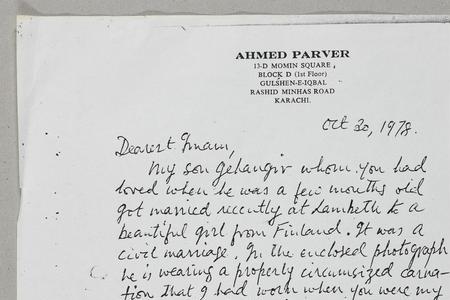 AHMED PARVER
13-D MOMIN SQUARE,
BLOCK D (1st Floor)
GULSHEN-E-IQBAL
RASHID MINHAS ROAD
KARACHI.
Oct 30, 1978.
Dearest Imam,
My son Gehangir whom you had
loved when he was a few months old
got married recently at Lambeth to a
beautiful girl from Finland. It was a
civil marriage. In the enclosed photograph
he is wearing a properly circumsized carna-
tion that I had worn when you were my